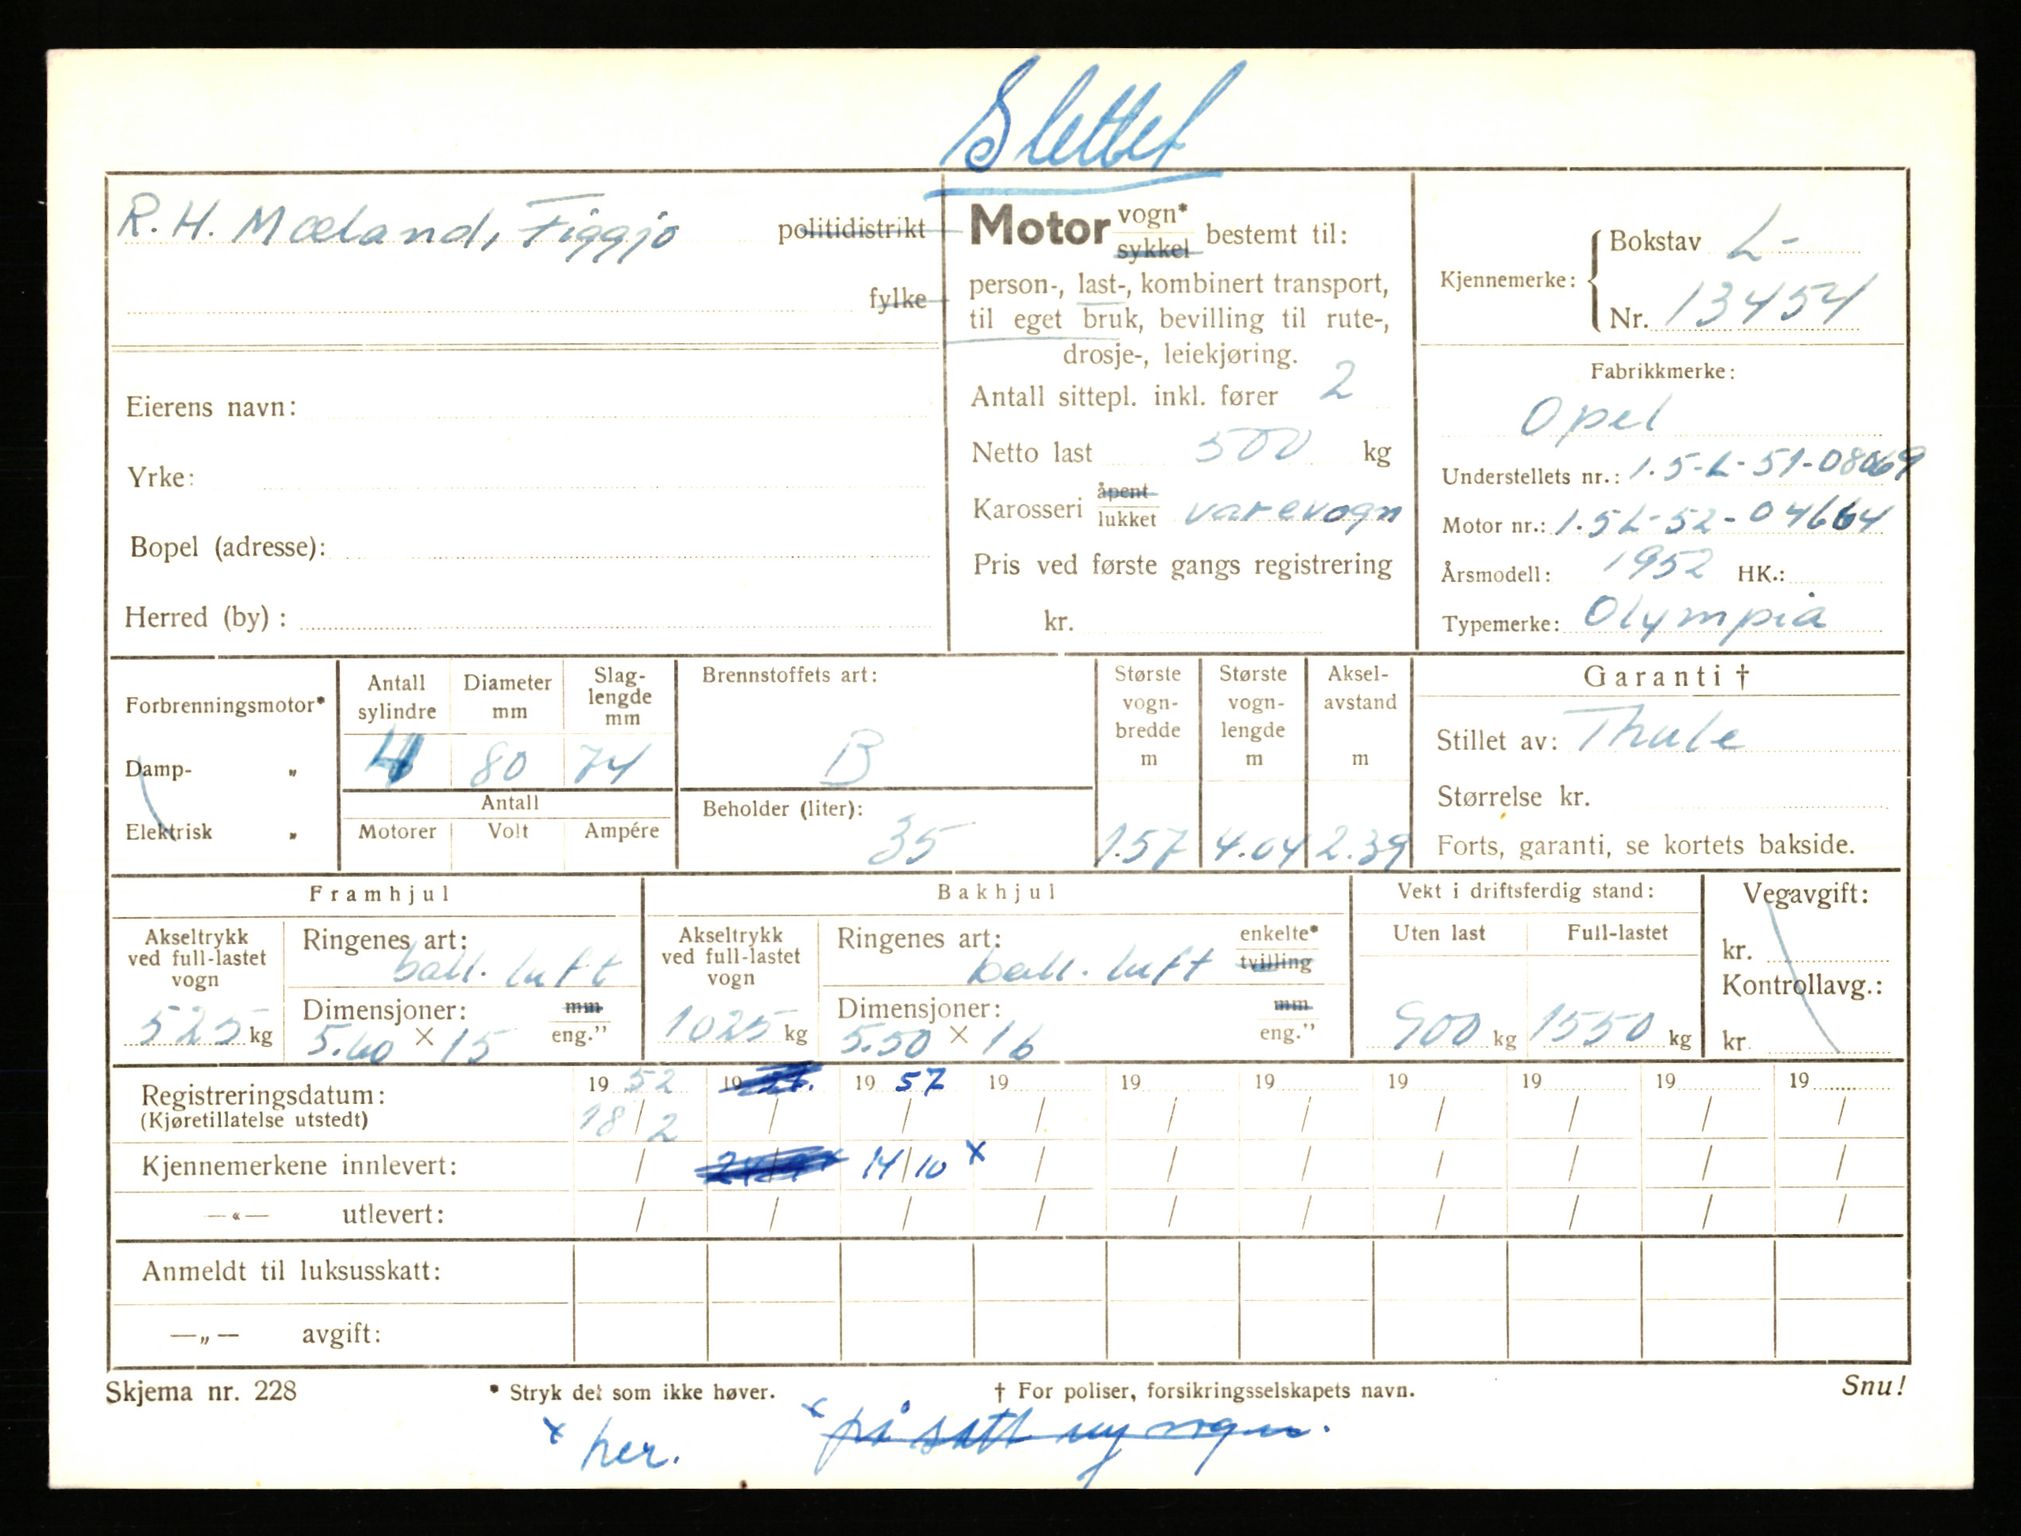 Slettet
R. H. Mæland, Figgjo politidistrikt
fylke
Eierens navn:
Yrke:
Bopel (adresse):
Herred (by) :
Motor vogn* sykkel bestemt til:
person-, last-, kombinert transport,
til eget bruk, bevilling til rute-,
drosje-, leiekjøring.
Antall sittepl. inkl. fører 2
Netto last 500 kg
Karosseri åpent lukket varevogn
Pris ved første gangs registrering
kr.
Kjennemerke: Bokstav L-
Nr. 13454
Fabrikkmerke:
Opel
Understellets nr.: 1.5-L-51-08069
Motor nr.: 1.5L-52-04664
Årsmodell: 1952 HK.:
Typemerke: Olympia
Forbrenningsmotor*
Damp- „
Elektrisk „
Antall sylindre
4
Diameter mm
80
Slag-
lengde
mm
74
Antall
Motorer Volt Ampére
Brennstoffets art:
B
Beholder (liter):
35
Største
vogn-
bredde
m
1.57
Største
vogn-
lengde
m
4.04
Aksel-
avstand
m
2.39
Garanti †
Stillet av: Thule
Størrelse kr.
Forts, garanti, se kortets bakside.
Framhjul
Akseltrykk
ved full-lastet
vogn
525 kg
Ringenes art:
ball. luft
Dimensjoner: mm
5.60 × 15 eng.”
Bakhjul
Akseltrykk
ved full-lastet
vogn
1025 kg
Ringenes art: enkelte*
ball. luft tvilling
Dimensjoner: mm
5.50 × 16 eng.”
Vekt i driftsferdig stand:
Uten last Full-lastet
900 kg 1550 kg
Vegavgift:
kr.
Kontrollavg.:
kr.
Registreringsdatum: 19 52 19 19 57 19 19 19 19 19 19 19
(Kjøretillatelse utstedt) 18/2 / / / / / / / / /
Kjennemerkene innlevert: / / 14/10 x / / / / / / /
—«— utlevert: / / / / / / / / / /
Anmeldt til luksusskatt:
—„— avgift:
Skjema nr. 228 * Stryk det som ikke høver. † For poliser, forsikringsselskapets navn. Snu!
x her. x på satt ny vogn.